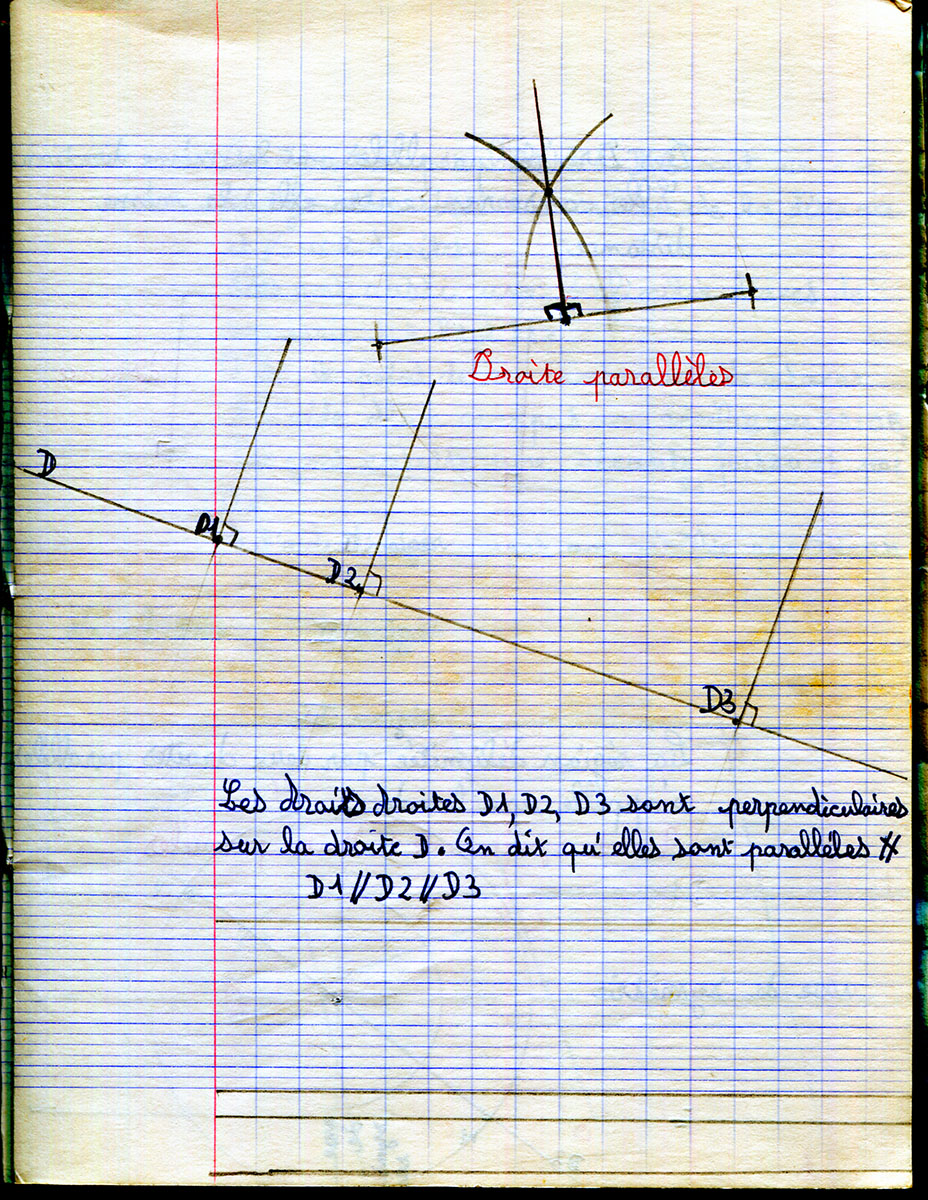 Droite parallèles
D
D1
D2
D3
Les droites D1, D2, D3 sont perpendiculaires
sur la droite D. On dit qu'elles sont parallèles //
D1//D2//D3